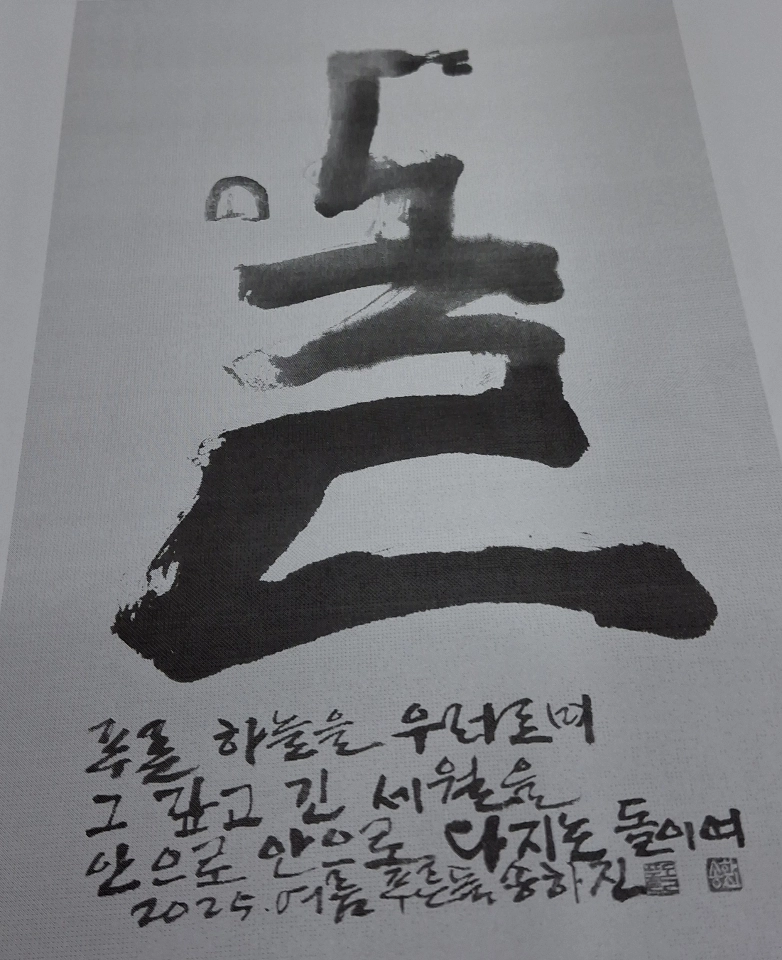 돌
푸른 하늘을 우러르며
그 깊고 긴 세월을
안으로 안으로 다지는 돌이여
2025. 여름 푸른돌 송하진